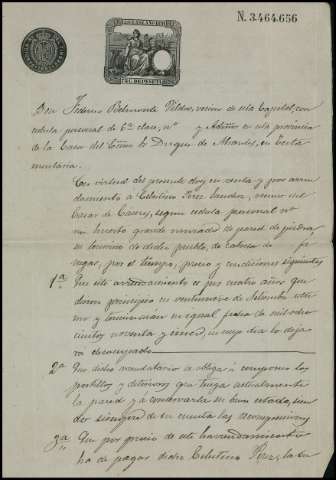 N. 3.464.656
Don Federico Belmonte Vildes, vecino de esta Capital, con
cedula personal de 6ª clase, nº y Admor en esta provincia
de la Casa del Exmo Sr Duque de Abrantes, en testa
mentaria.
En virtud del presente doy en renta y por arren
damiento a Celestino Perez Sanchez, vecino del
Casar de Caceres, segun cedula personal nº
un huerto grande murado de pared de piedra,
en termino de dicho pueblo, de cabida de fa
negas, por el tiempo, precio y condiciones siguientes
1ª Que este arrendamiento es por cuatro años que
daron principio en veintinueve de Setiembre ulti
mo y terminarán en igual fecha de mil ocho
cientos noventa y cinco, en cuyo dia lo deja
rá desocupado
2ª Que dicho rentatario se obliga a componer los
portillos y deterioros que tenga actualmente
la pared y a conservarla en buen estado, sien
do siempre de su cuenta las recomposiciones
3ª Que por precio de este arrendamiento
ha de pagar dicho Celestino Perez, la